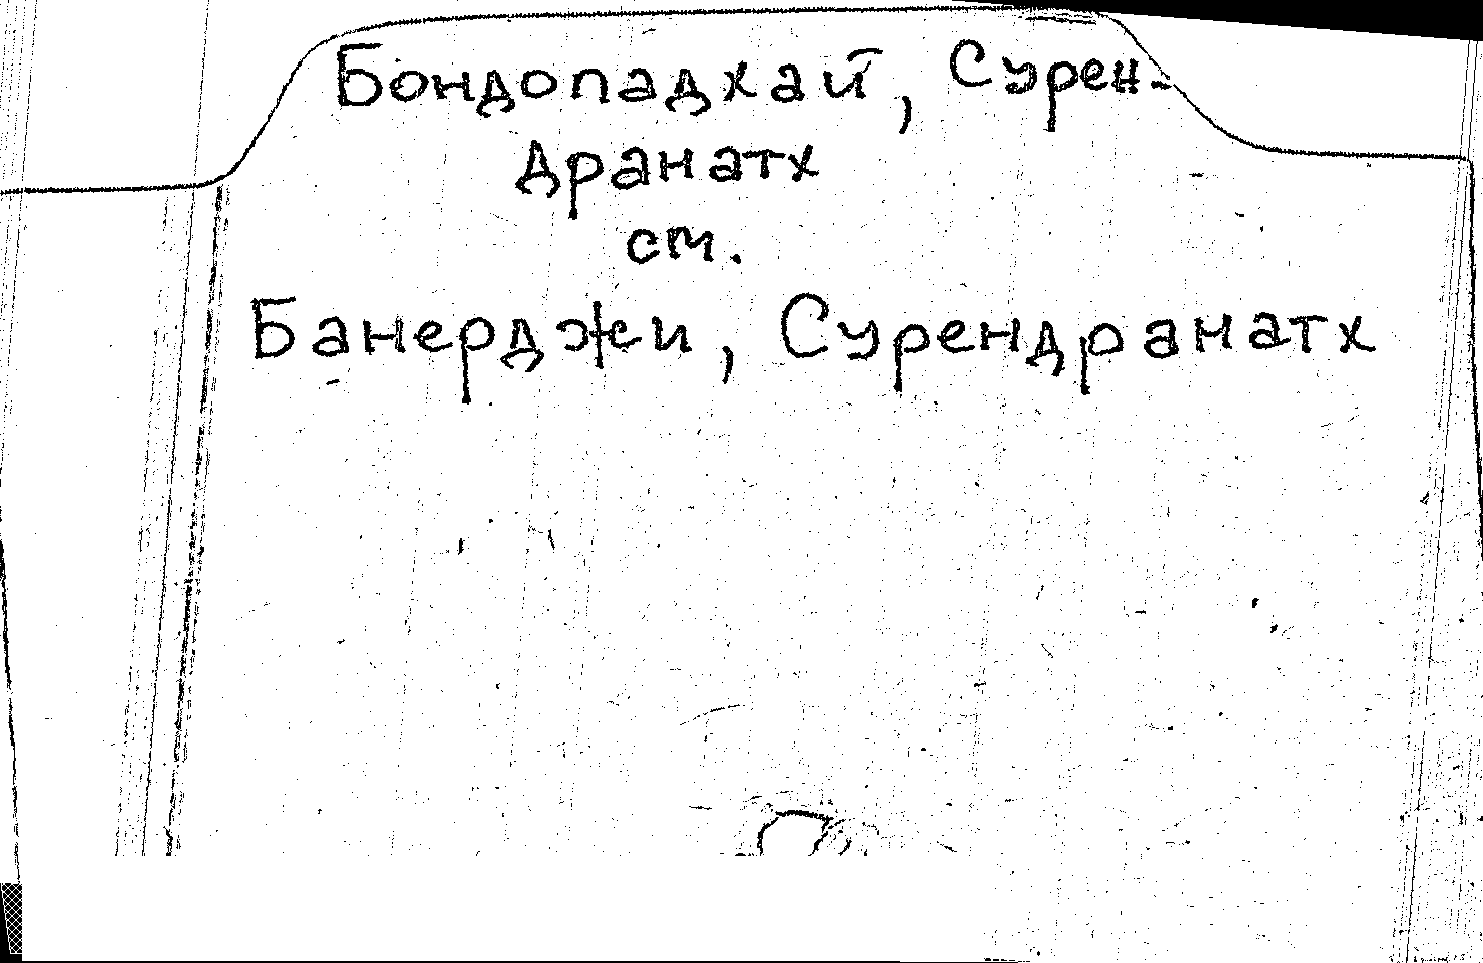 Бондопадхай, Сурен-
дранатх
см.
Банерджи, Сурендранатх